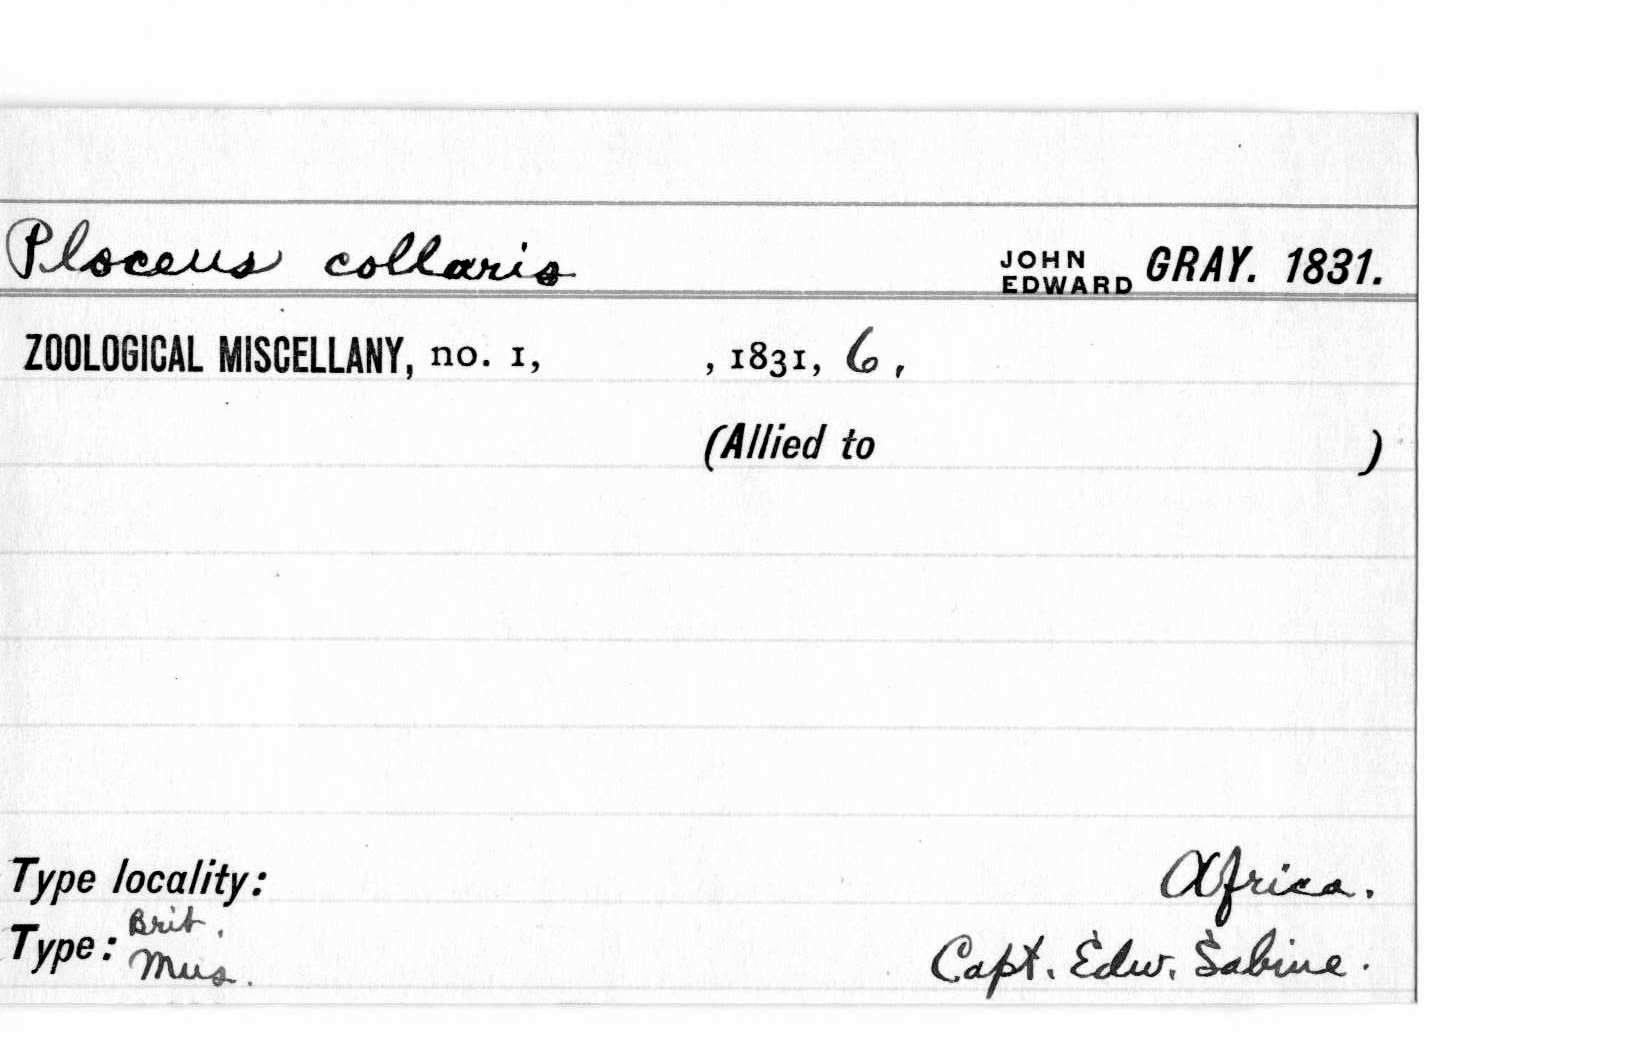 Ploceus collaris JOHN EDWARD GRAY. 1831.
ZOOLOGICAL MISCELLANY, no. 1, , 1831, 6,
(Allied to )
Type locality: Africa.
Type: Brit. Mus. Capt. Edw. Sabine.